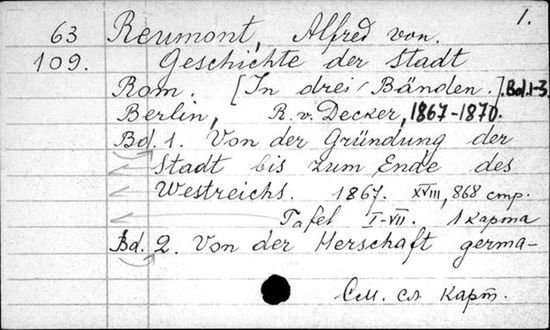 1.
63 Reumont, Alfred von.
109. Geschichte der Stadt
Rom. [In drei Bänden.] Bd.1-3
Berlin, R. v. Decker, 1867-1870.
Bd. 1. Von der Gründung der
Stadt bis zum Ende des
Westreichs. 1867. XVIII, 868 стр.
Tafel I-VII. 1 карта
Bd. 2. Von der Herschaft germa-
См. сл карт.